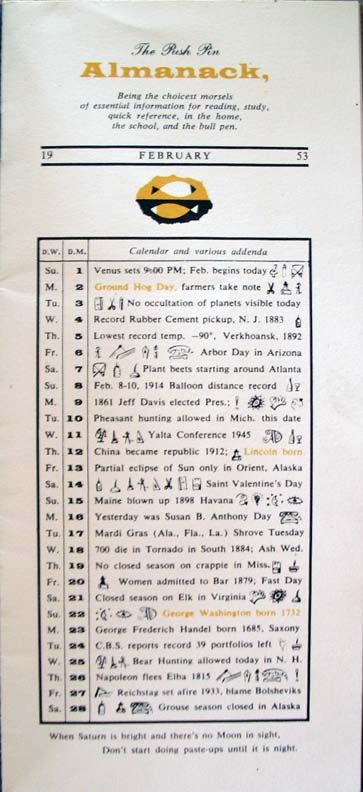 The Push Pin
Almanack,
Being the choicest morsels
of essential information for reading, study,
quick reference, in the home,
the school, and the bull pen.
19 FEBRUARY 53
D.W. D.M. Calendar and various addenda
Su. 1 Venus sets 9:00 PM; Feb. begins today
M. 2 Ground Hog Day, farmers take note
Tu. 3 No occultation of planets visible today
W. 4 Record Rubber Cement pickup, N. J. 1883
Th. 5 Lowest record temp. –90°, Verkhoansk, 1892
Fr. 6 Arbor Day in Arizona
Sa. 7 Plant beets starting around Atlanta
Su. 8 Feb. 8-10, 1914 Balloon distance record
M. 9 1861 Jeff Davis elected Pres.;
Tu. 10 Pheasant hunting allowed in Mich. this date
W. 11 Yalta Conference 1945
Th. 12 China became republic 1912; Lincoln born
Fr. 13 Partial eclipse of Sun only in Orient, Alaska
Sa. 14 Saint Valentine's Day
Su. 15 Maine blown up 1898 Havana
M. 16 Yesterday was Susan B. Anthony Day
Tu. 17 Mardi Gras (Ala., Fla., La.) Shrove Tuesday
W. 18 700 die in Tornado in South 1884; Ash Wed.
Th. 19 No closed season on crappie in Miss.
Fr. 20 Women admitted to Bar 1879; Fast Day
Sa. 21 Closed season on Elk in Virginia
Su. 22 George Washington born 1732
M. 23 George Frederich Handel born 1685, Saxony
Tu. 24 C.B.S. reports record 39 portfolios left
W. 25 Bear Hunting allowed today in N. H.
Th. 26 Napoleon flees Elba 1815
Fr. 27 Reichstag set afire 1933, blame Bolsheviks
Sa. 28 Grouse season closed in Alaska
When Saturn is bright and there's no Moon in sight,
Don't start doing paste-ups until it is night.